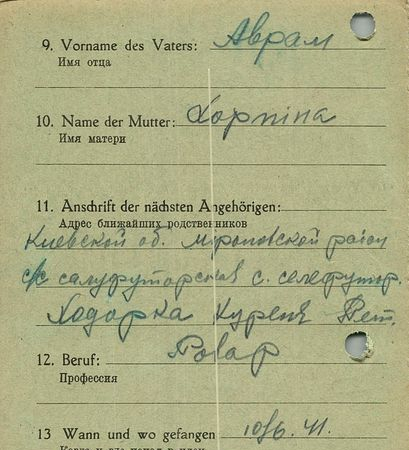 9. Vorname des Vaters: Аврам
Имя отца
10. Name der Mutter: Хорпіна
Имя матери
11. Anschrift der nächsten Angehörigen:
Адрес ближайших родственников
Киевской об. район
с/с с.
Ходорка Куреня
12. Beruf: Повар
Профессия
13 Wann und wo gefangen 10/6. 41.